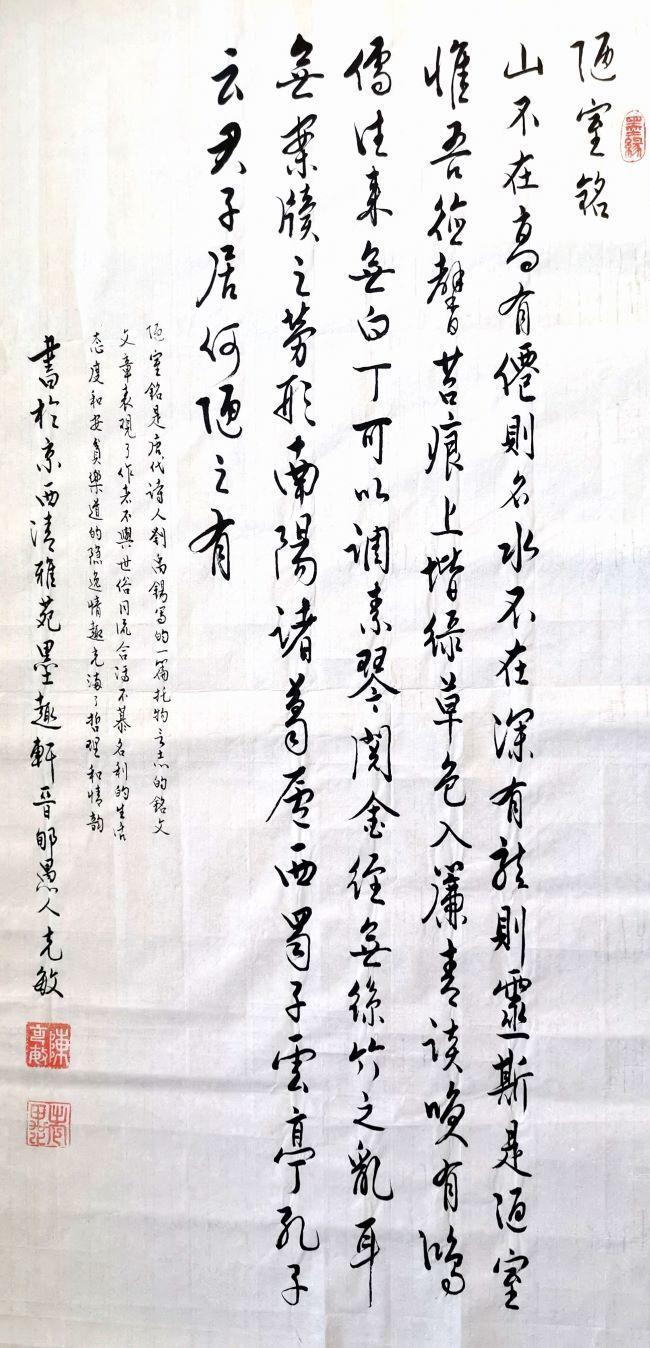 墨緣
陋室銘
山不在高有僊則名水不在深有龍則靈斯是陋室
惟吾德馨苔痕上堦绿草色入簾青談唤有鴻
儒往来無白丁可以調素琴閲金経無絲竹之亂耳
無案牘之勞形南陽诸葛廬西蜀子雲亭孔子
云君子居何陋之有
陋室銘是唐代詩人劉禹錫写的一篇托物言志的銘文
文章表現了作者不與世俗同流合污不慕名利的生活
态度和安貧樂道的隐逸情趣充满了哲理和情韵
書於京西清雅苑墨趣軒晋郇愚人克敏
陳克敏